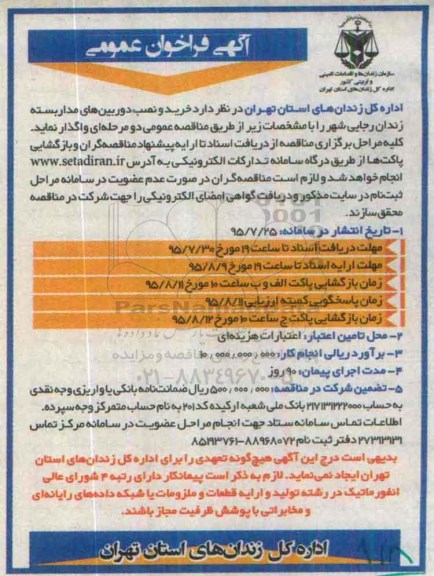 آگهی فراخوان عمومی
سازمان زندان‌ها و اقدامات تامینی
و تربیتی کشور
اداره کل زندان‌های استان تهران
اداره کل زندان‌های استان تهران در نظر دارد خرید و نصب دوربین‌های مداربسته
زندان رجایی شهر را با مشخصات زیر از طریق مناقصه عمومی دو مرحله‌ای واگذار نماید.
کلیه مراحل برگزاری مناقصه از دریافت اسناد تا ارایه پیشنهاد مناقصه‌گران و بازگشایی
پاکت‌ها از طریق درگاه سامانه تدارکات الکترونیکی به آدرس www.setadiran.ir
انجام خواهد شد و لازم است مناقصه‌گران در صورت عدم عضویت در سامانه مراحل
ثبت‌نام در سایت مذکور و دریافت گواهی امضای الکترونیکی را جهت شرکت در مناقصه
محقق سازند.
۱- تاریخ انتشار در سامانه: ۹۵/۷/۲۵
مهلت دریافت اسناد تا ساعت ۱۹ مورخ ۹۵/۷/۳۰
مهلت ارایه اسناد تا ساعت ۱۹ مورخ ۹۵/۸/۹
زمان بازگشایی پاکت الف و ب ساعت ۱۰ مورخ ۹۵/۸/۱۱
زمان پاسخگویی کمیته ارزیابی ۹۵/۸/۱۱
زمان بازگشایی پاکت ج ساعت ۱۰ مورخ ۹۵/۸/۱۲
۲- محل تامین اعتبار: اعتبارات هزینه‌ای
۳- برآورد ریالی انجام کار: ۱۰,۰۰۰,۰۰۰,۰۰۰
۴- مدت اجرای پیمان: ۹۰ روز
۵- تضمین شرکت در مناقصه: ۵۰۰,۰۰۰,۰۰۰ ریال ضمانت‌نامه بانکی یا واریزی وجه نقدی
به حساب ۲۱۷۱۳۱۲۲۲۰۰۰ بانک ملی شعبه ارکیده کد ۲۰۱ به نام حساب متمرکز وجه سپرده.
اطلاعات تماس سامانه ستاد جهت انجام مراحل عضویت در سامانه مرکز تماس
۲۷۳۱۳۱۳۱ دفتر ثبت نام ۸۸۹۶۸۰۷۲-۸۵۱۹۳۷۶۱
بدیهی است درج این آگهی هیچ‌گونه تعهدی را برای اداره کل زندان‌های استان
تهران ایجاد نمی‌نماید. لازم به ذکر است پیمانکار دارای رتبه ۴ شورای عالی
انفورماتیک در رشته تولید و ارایه قطعات و ملزومات یا شبکه داده‌های رایانه‌ای
و مخابراتی با پوشش ظرفیت مجاز باشند.
اداره کل زندان‌های استان تهران